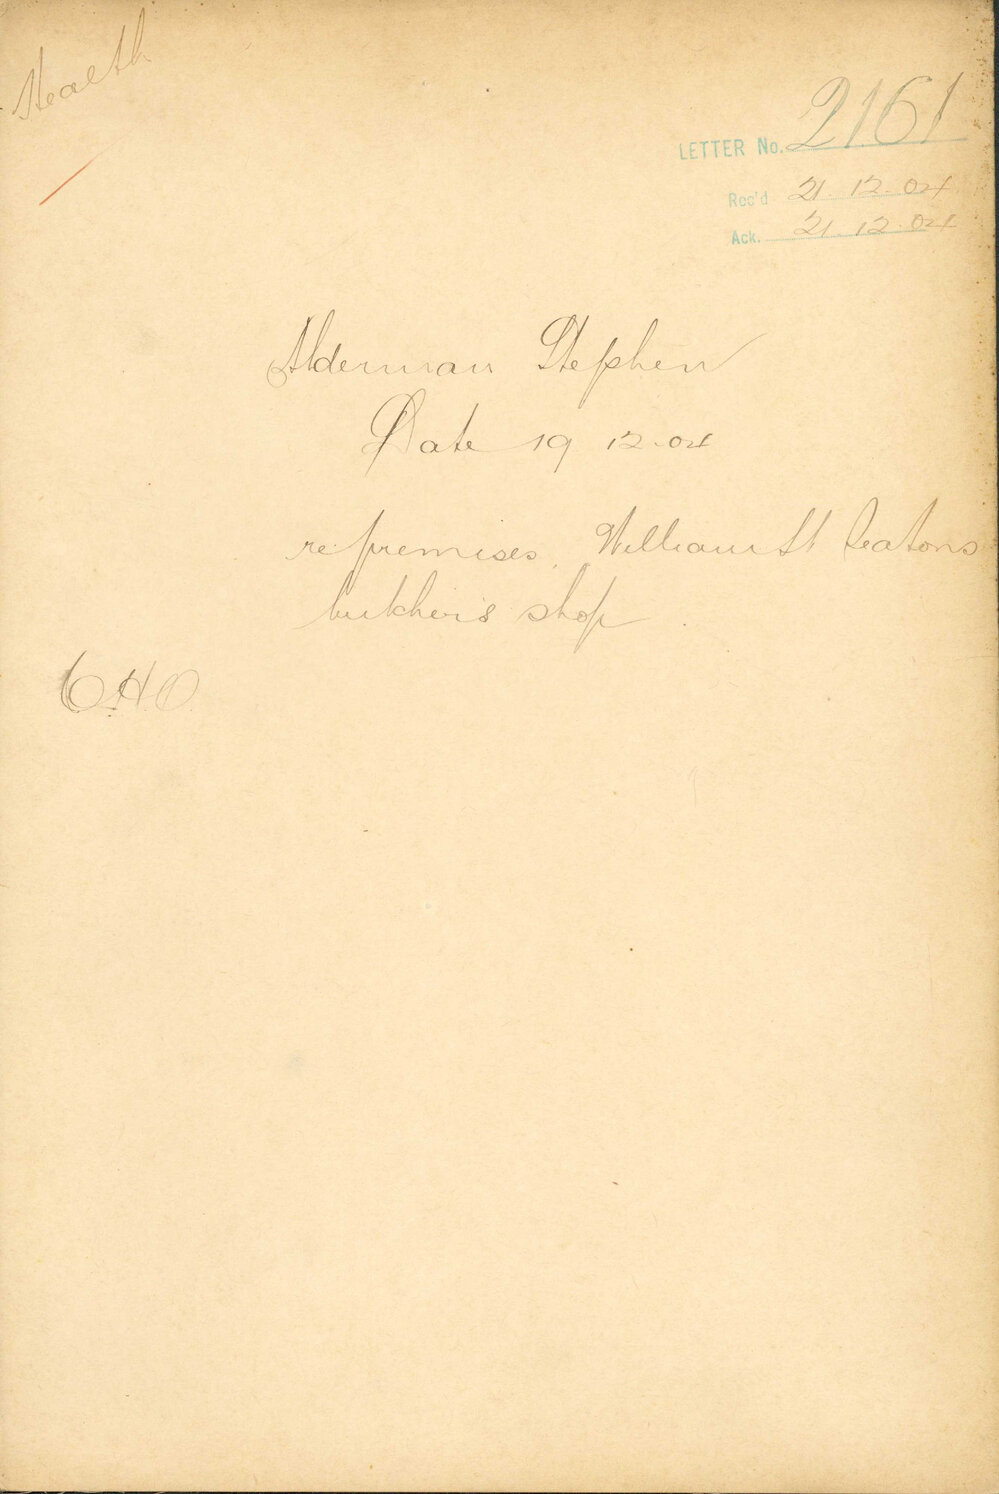 Health
LETTER No. 2161
Rec'd 21.12.04
Ack. 21.12.04
Alderman Stephen
Date 19 12.04
re premises, William St Seatons
butcher's shop
C.H.O.